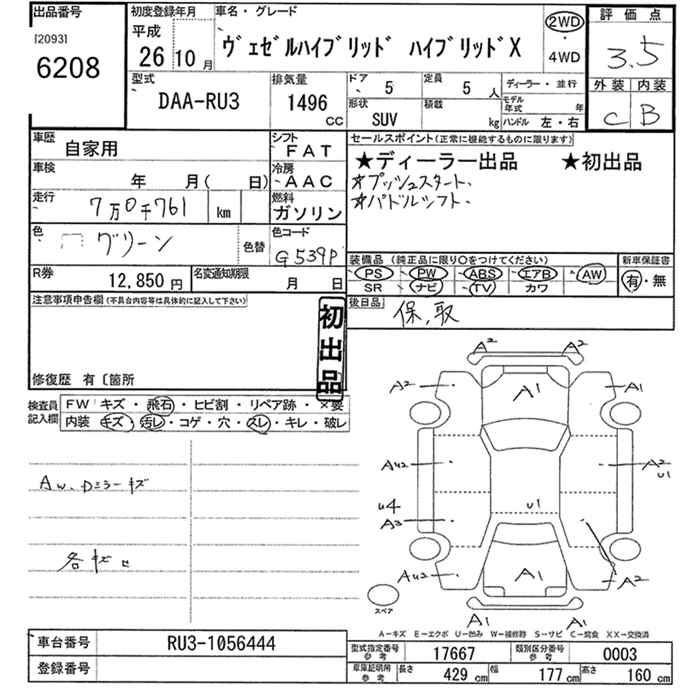 出品番号
[2093]
6208
初度登録年月
平成
26 10月
車名・グレード
ヴェゼルハイブリッド ハイブリッドX
2WD
・
4WD
評価点
3.5
外装 内装
C B
型式
DAA-RU3
排気量
1496
CC
ドア
5
定員
5 人
形状
SUV
積載
kg
ディーラー・並行
モデル年式 年
ハンドル 左・右
車歴
自家用
シフト
FAT
車検
年 月( 日)
冷房
AAC
走行
7万0千761 km
燃料
ガソリン
色
グリーン
色替
色コード
G539P
R券
12,850 円
名変通知期限
月 日
セールスポイント(正常に機能するものに限ります)
★ディーラー出品 ★初出品
☆プッシュスタート.
☆パドルシフト.
装備品 (純正品に限り○をつけてください)
PS PW ABS エアB AW
SR ナビ TV カワ
新車保証書
有・無
後日品
保,取
注意事項申告欄(不具合内容等は具体的に記入して下さい)
初出品
修復歴 有〔箇所
検査員記入欄
FW キズ・飛石・ヒビ割・リペア跡・×要
内装 キズ・汚レ・コゲ・穴・スレ・キレ・破レ
AW、Dミラーキズ
各キズ
A2 A2
A2 A1 A1
AU2 A2 U1
U4 U1
A3
AU2 A1 A2
A1 A1
スペア
A－キズ E－エクボ U－凹み W－補修跡 S－サビ C－腐食 XX－交換済
車台番号
RU3-1056444
登録番号
型式指定番号 参考
17667
類別区分番号 参考
0003
車庫証明用 参考
長さ 429 cm
幅 177 cm
高さ 160 cm